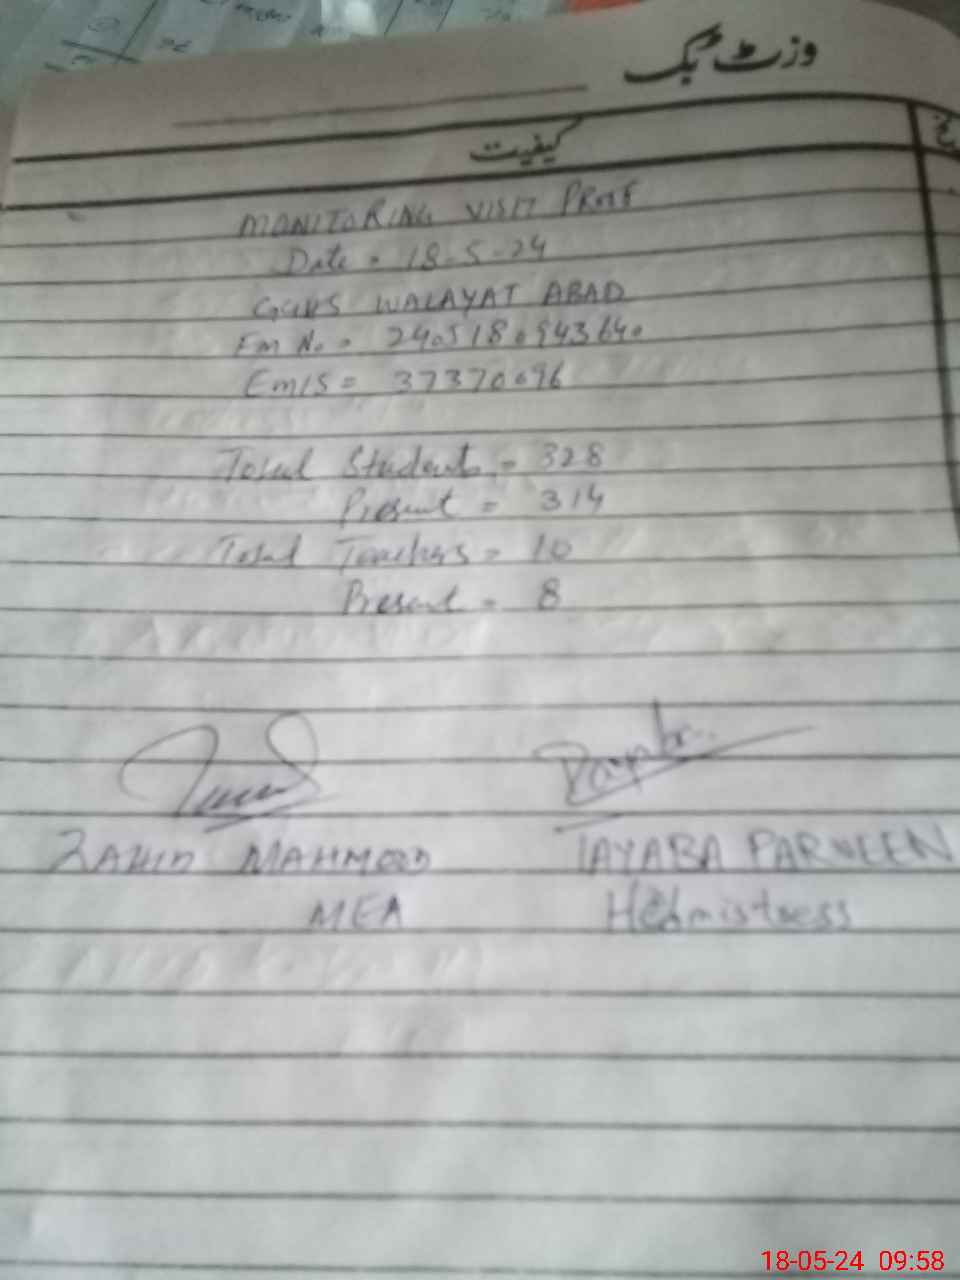 وزٹ بک
کیفیت
MONITORING VISIT PROOF
Date = 18-5-24
WALAYAT ABAD
Em No =
Emis = 37370096
Total Students = 328
Present = 314
Total Teachers = 10
Present = 8
ZAHID MAHMOOD
TAYABA PARVEEN
MEA
Hedmistress
18-05-24 09:58